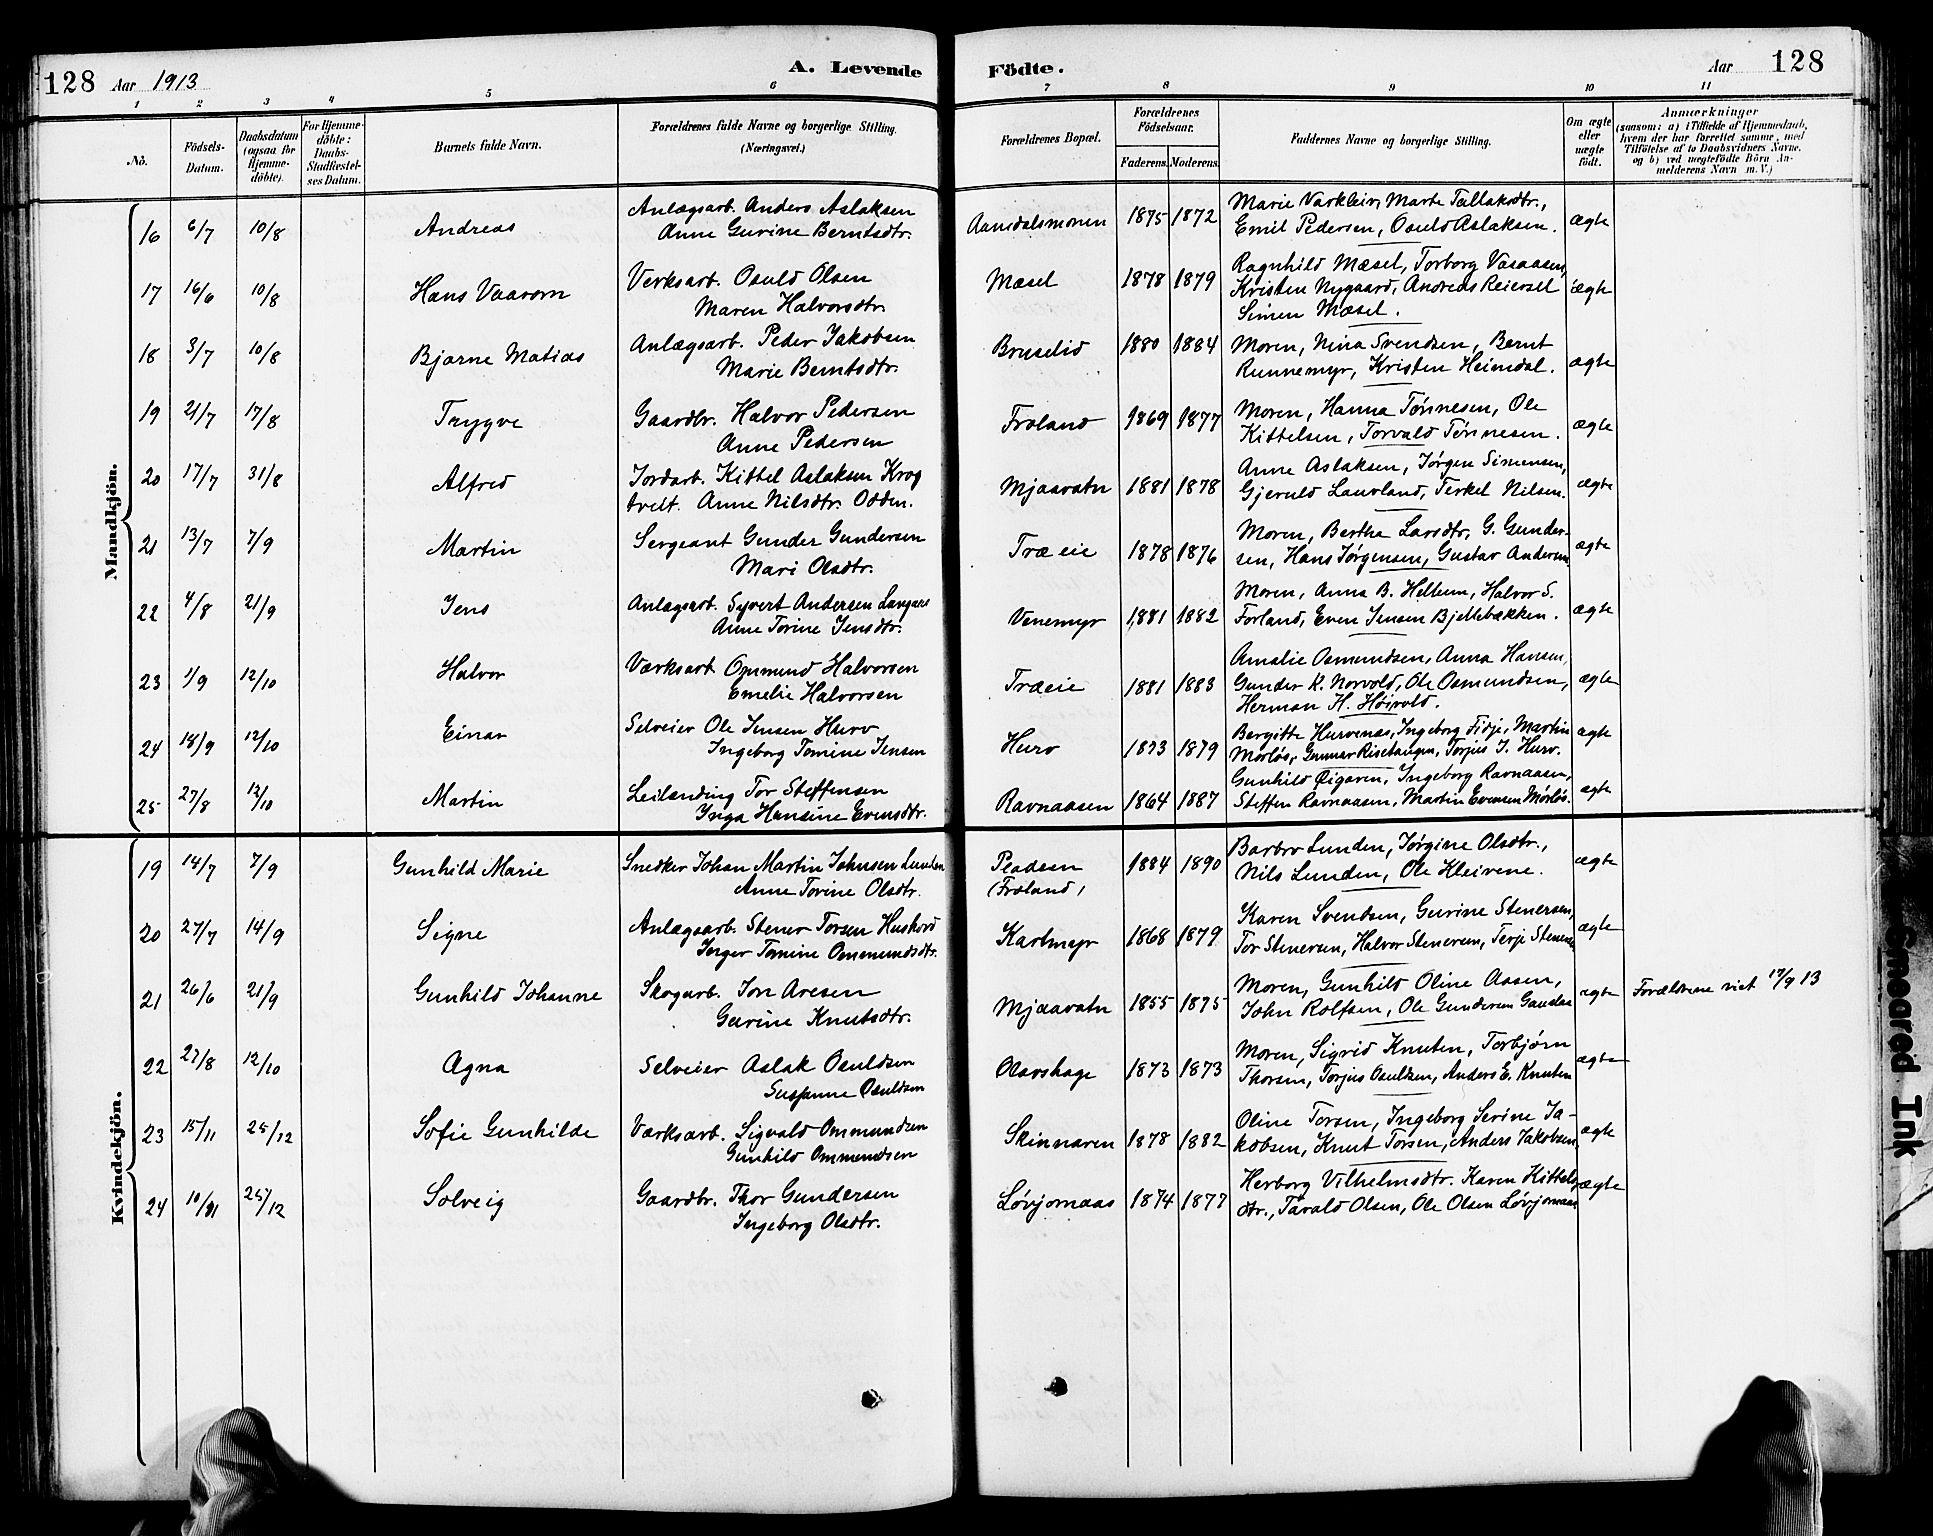 128 Aar 1913 A. Levende Födte. Aar 128
1 2 3 4 5 6 7 8 9 10 11
No.
Födsels-Datum.
Daabsdatum (ogsaa for Hjemme-döbte).
For Hjemme-döbte: Daabs-Stadfæstel-ses Datum.
Barnets fulde Navn.
Forældrenes fulde Navne og borgerlige Stilling. (Næringsvei.)
Forældrenes Bopæl.
Forældrenes Födselsaar.
Faderens. Moderens.
Faddernes Navne og borgerlige Stilling.
Om ægte eller uægte födt.
Anmærkninger
(saasom: a) i Tilfælde af Hjemmedaab, hvem der har forrettet samme, med Tilföielse af to Daabsvidners Navne, og b) ved uægtefödte Börn An-melderens Navn m. V.)
Mandkjön.
16 6/7 10/8 Andreas Anlægsarb. Anders Aslaksen Aamdalsmonen 1875 1872 Marie Varkleiv, Marte Tallaksdtr., ægte
Anne Gurine Berntsdtr. Emil Pedersen, Osuld Aslaksen.
17 16/6 10/8 Hans Vaarom Verksarb. Osuld Olsen Mæsel 1878 1879 Ragnhild Mæsel, Torborg Vasaasen, ægte
Maren Halvorsdtr. Kristen Nygaard, Andreas Reiersel
Simen Mæsel.
18 3/7 10/8 Bjarne Matias Anlægsarb. Peder Jakobsen Bruselid 1880 1884 Moren, Nina Svendsen, Bernt ægte
Marie Berntsdtr. Runnemyr, Kristen Heimdal.
19 21/7 17/8 Trygve Gaardbr. Halvor Pedersen Froland 1869 1877 Moren, Hanna Tønnesen, Ole ægte
Anne Pedersen Kittelsen, Torvald Tønnesen.
20 17/7 31/8 Alfred Jordarb. Kittel Aslaksen Krog Mjaavatn 1881 1878 Anne Aslaksen, Jørgen Simensen, ægte
tveit. Anne Nilsdtr. Odden. Gjeruld Lauvland, Terkel Nilsen.
21 13/7 7/9 Martin Sergeant Gunder Gundersen Træeie 1878 1876 Moren, Berthe Larsdtr, G. Gunder- ægte
Mari Olsdtr. sen, Hans Jørgensen, Gustav Andersen
22 4/8 21/9 Jens Anlægsarb. Syvert Andersen Langaas Venemyr 1881 1882 Moren, Anna B. Hellum, Halvor S. ægte
Anne Torine Jensdtr. Forland, Even Jensen Bjellebækken.
23 1/9 12/10 Halvor Værksarb Ommund Halvorsen Træeie 1881 1883 Amalie Osmundsen, Anna Hansen, ægte
Emelie Halvorsen Gunder K. Norvold, Ole Osmundsen,
Herman H. Høivold.
24 18/9 12/10 Einar Selveier Ole Jensen Hurv Hurv 1873 1879 Bergitte Hurvenæs, Ingeborg Fidje, Martin ægte
Ingeborg Tomine Jensen Mørløs, Gunnar Risetangen, Torjus J. Hurv.
25 27/8 12/10 Martin Leilænding Tor Steffensen Ravnaasen 1864 1887 Gunhild Øigaren, Ingeborg Ravnaasen, ægte
Inga Hansine Evensdtr. Steffen Ravnaasen, Martin Evensen Mørløs.
Kvindekjön.
19 14/7 7/9 Gunhild Marie Snedker Johan Martin Johnsen Lunden 1884 1890 Barbro Lunden, Jørgine Olsdtr., ægte
Anne Torine Olsdtr. (Froland) Nils Lunden, Ole Kleivene.
20 27/7 14/9 Signe Anlægsarb. Stener Torsen Huskord Kartmyr 1868 1879 Karen Svendsen, Gurine Stenersen, ægte
Inger Tomine Ommundsdtr. Tor Stenersen, Halvor Stenersen, Terje Stenersen
21 26/6 21/9 Gunhild Johanne Skogarb. Jon Aresen Mjaavatn 1855 1875 Moren, Gunhild Oline Aasen, ægte Forældrene viet 17/9 13
Gurine Knutsdtr. John Rolfsen, Ole Gundersen
22 27/8 12/10 Agna Selveier Aslak Osuldsen Olavshage 1873 1873 Moren, Sigrid Knutsen, Torbjørn ægte
Susanne Osuldsen Thorsen, Torjus Osuldsen, Anders E. Knutsen
23 15/11 25/12 Sofie Gunhilde Værksarb. Sigvald Ommundsen Skinnaren 1878 1882 Oline Torsen, Ingeborg Serine Ja- ægte
Gunhild Ommundsen kobsen, Knut Torsen, Anders Jakobsen.
24 10/11 25/12 Solveig Gaardbr. Thor Gundersen Løvjomaas 1874 1877 Herborg Vilhelmsdtr. Karen Kittels ægte
Ingeborg Olsdtr. dtr., Tarald Olsen, Ole Olsen Løvjomaas
Smeared Ink